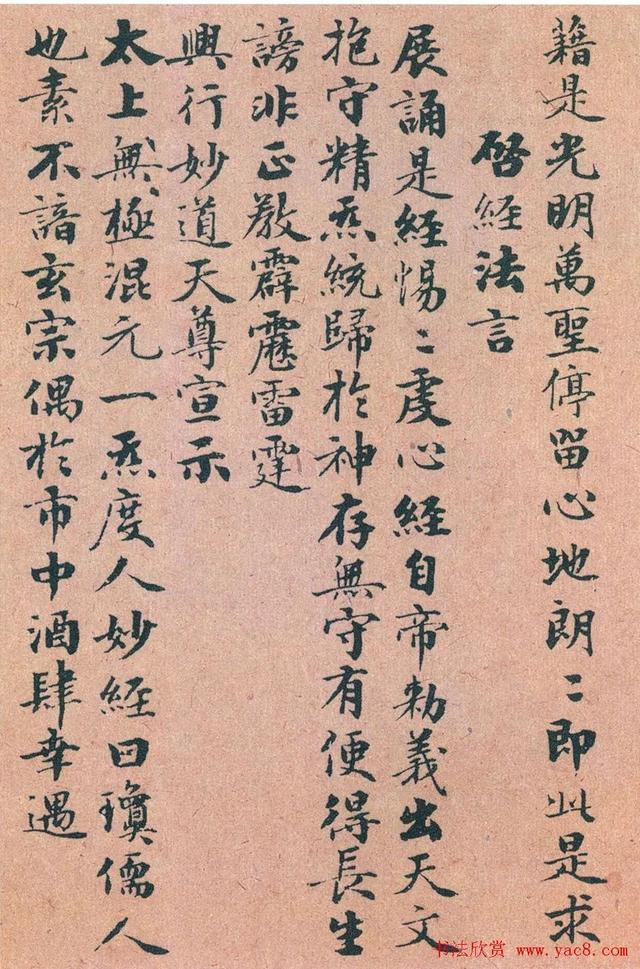 籍是光明萬聖停留心地朗〻即此是求
啓經法言
展誦是經惕〻虔心經自帝勅義出天文
抱守精炁統歸於神存無守有便得長生
謗非正教霹靂雷霆
興行妙道天尊宣示
太上無極混元一炁度人妙經曰瓊儒人
也素不諳玄宗偶於市中酒肆幸遇
书法欣赏 www.yac8.com